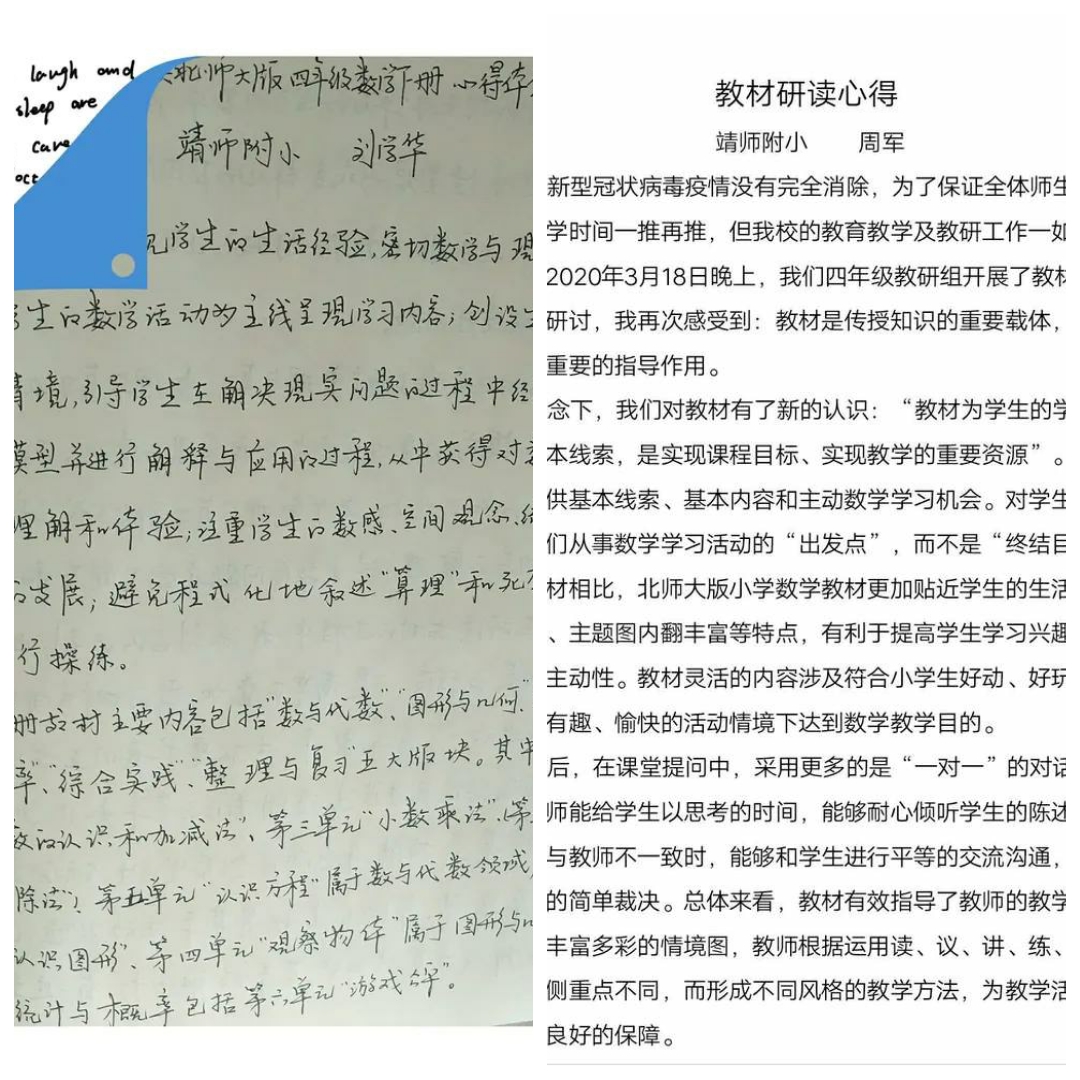 laugh and
sleep are
care
oct
北师大版四年级数学下册 心得体
靖师附小 刘学华
学生的生活经验,密切数学与现
学生的数学活动为主线呈现学习内容;创设
情境,引导学生在解决现实问题的过程中经
模型并进行解释与应用的过程,从中获得对
理解和体验;注重学生的数感、空间观念、统
的发展;避免程式化地叙述“算理”和
行操练。
册教材主要内容包括“数与代数”、“图形与几何”
率”、“综合实践”、“整理与复习”五大版块。其中
数的认识和加减法”、第三单元“小数乘法”、(第
除法”;第五单元“认识方程”属于数与代数领域
认识图形”、第四单元“观察物体”属于图形与
统计与概率包括第六单元“游戏公平”。
教材研读心得
靖师附小 周军
新型冠状病毒疫情没有完全消除，为了保证全体师生
学时间一推再推，但我校的教育教学及教研工作一如
2020年3月18日晚上，我们四年级教研组开展了教材
研讨，我再次感受到：教材是传授知识的重要载体，
重要的指导作用。
念下，我们对教材有了新的认识：“教材为学生的学
本线索，是实现课程目标、实现教学的重要资源”。
供基本线索、基本内容和主动数学学习机会。对学生
们从事数学学习活动的“出发点”，而不是“终结目
材相比，北师大版小学数学教材更加贴近学生的生活
、主题图内翻丰富等特点，有利于提高学生学习兴趣
主动性。教材灵活的内容涉及符合小学生好动、好玩
有趣、愉快的活动情境下达到数学教学目的。
后，在课堂提问中，采用更多的是“一对一”的对话
师能给学生以思考的时间，能够耐心倾听学生的陈述
与教师不一致时，能够和学生进行平等的交流沟通，
的简单裁决。总体来看，教材有效指导了教师的教学
丰富多彩的情境图，教师根据运用读、议、讲、练、
侧重点不同，而形成不同风格的教学方法，为教学活
良好的保障。